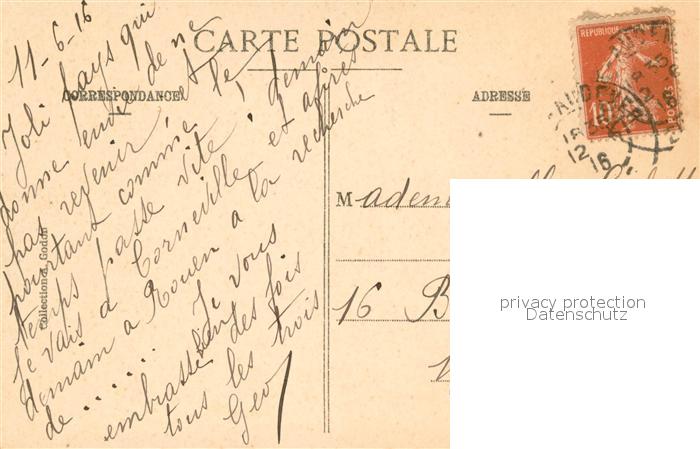 CARTE POSTALE
CORRESPONDANCE
ADRESSE
11-6-16
Joli pays qui
donne envie de ne
pas revenir, et le
pourtant comme
temps passe vite ! demain
je vais à Corneville et après
demain à Rouen à la recherche
de ....... Je vous
embrasse bien des fois
tous les trois
Geo
Collection Godon
REPUBLIQUE
10
POSTES
16
12
16
Madem
16 B
privacy protection
Datenschutz